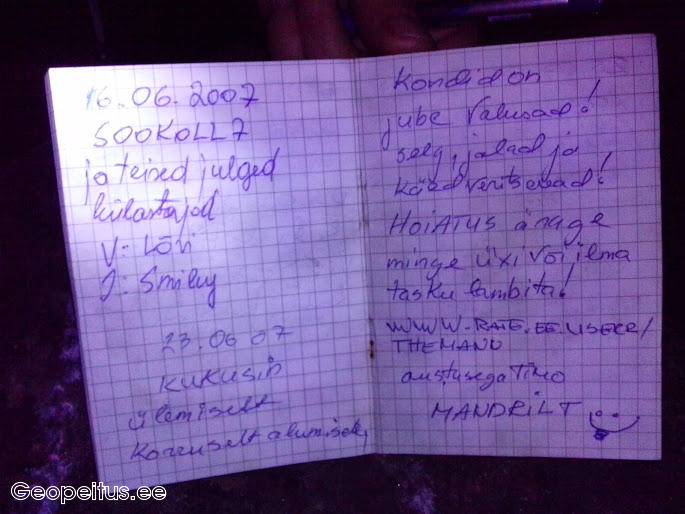 16.06.2007
SOOKOLL7
ja teised julged
külastajad
V: Lõvi
J: Smiley
23.06 07
KUKUSIN
ülemiselt
Korruselt alumisele,
Kondid on
jube Valusad!
selg, jalad ja
käed veritsevad!
HOIATUS ärage
minge üxi või ilma
tasku lambita!
WWW.RATE.EE.USECR/
THEMANU
austusega TIMO
MANDRILT
Geopeitus.ee